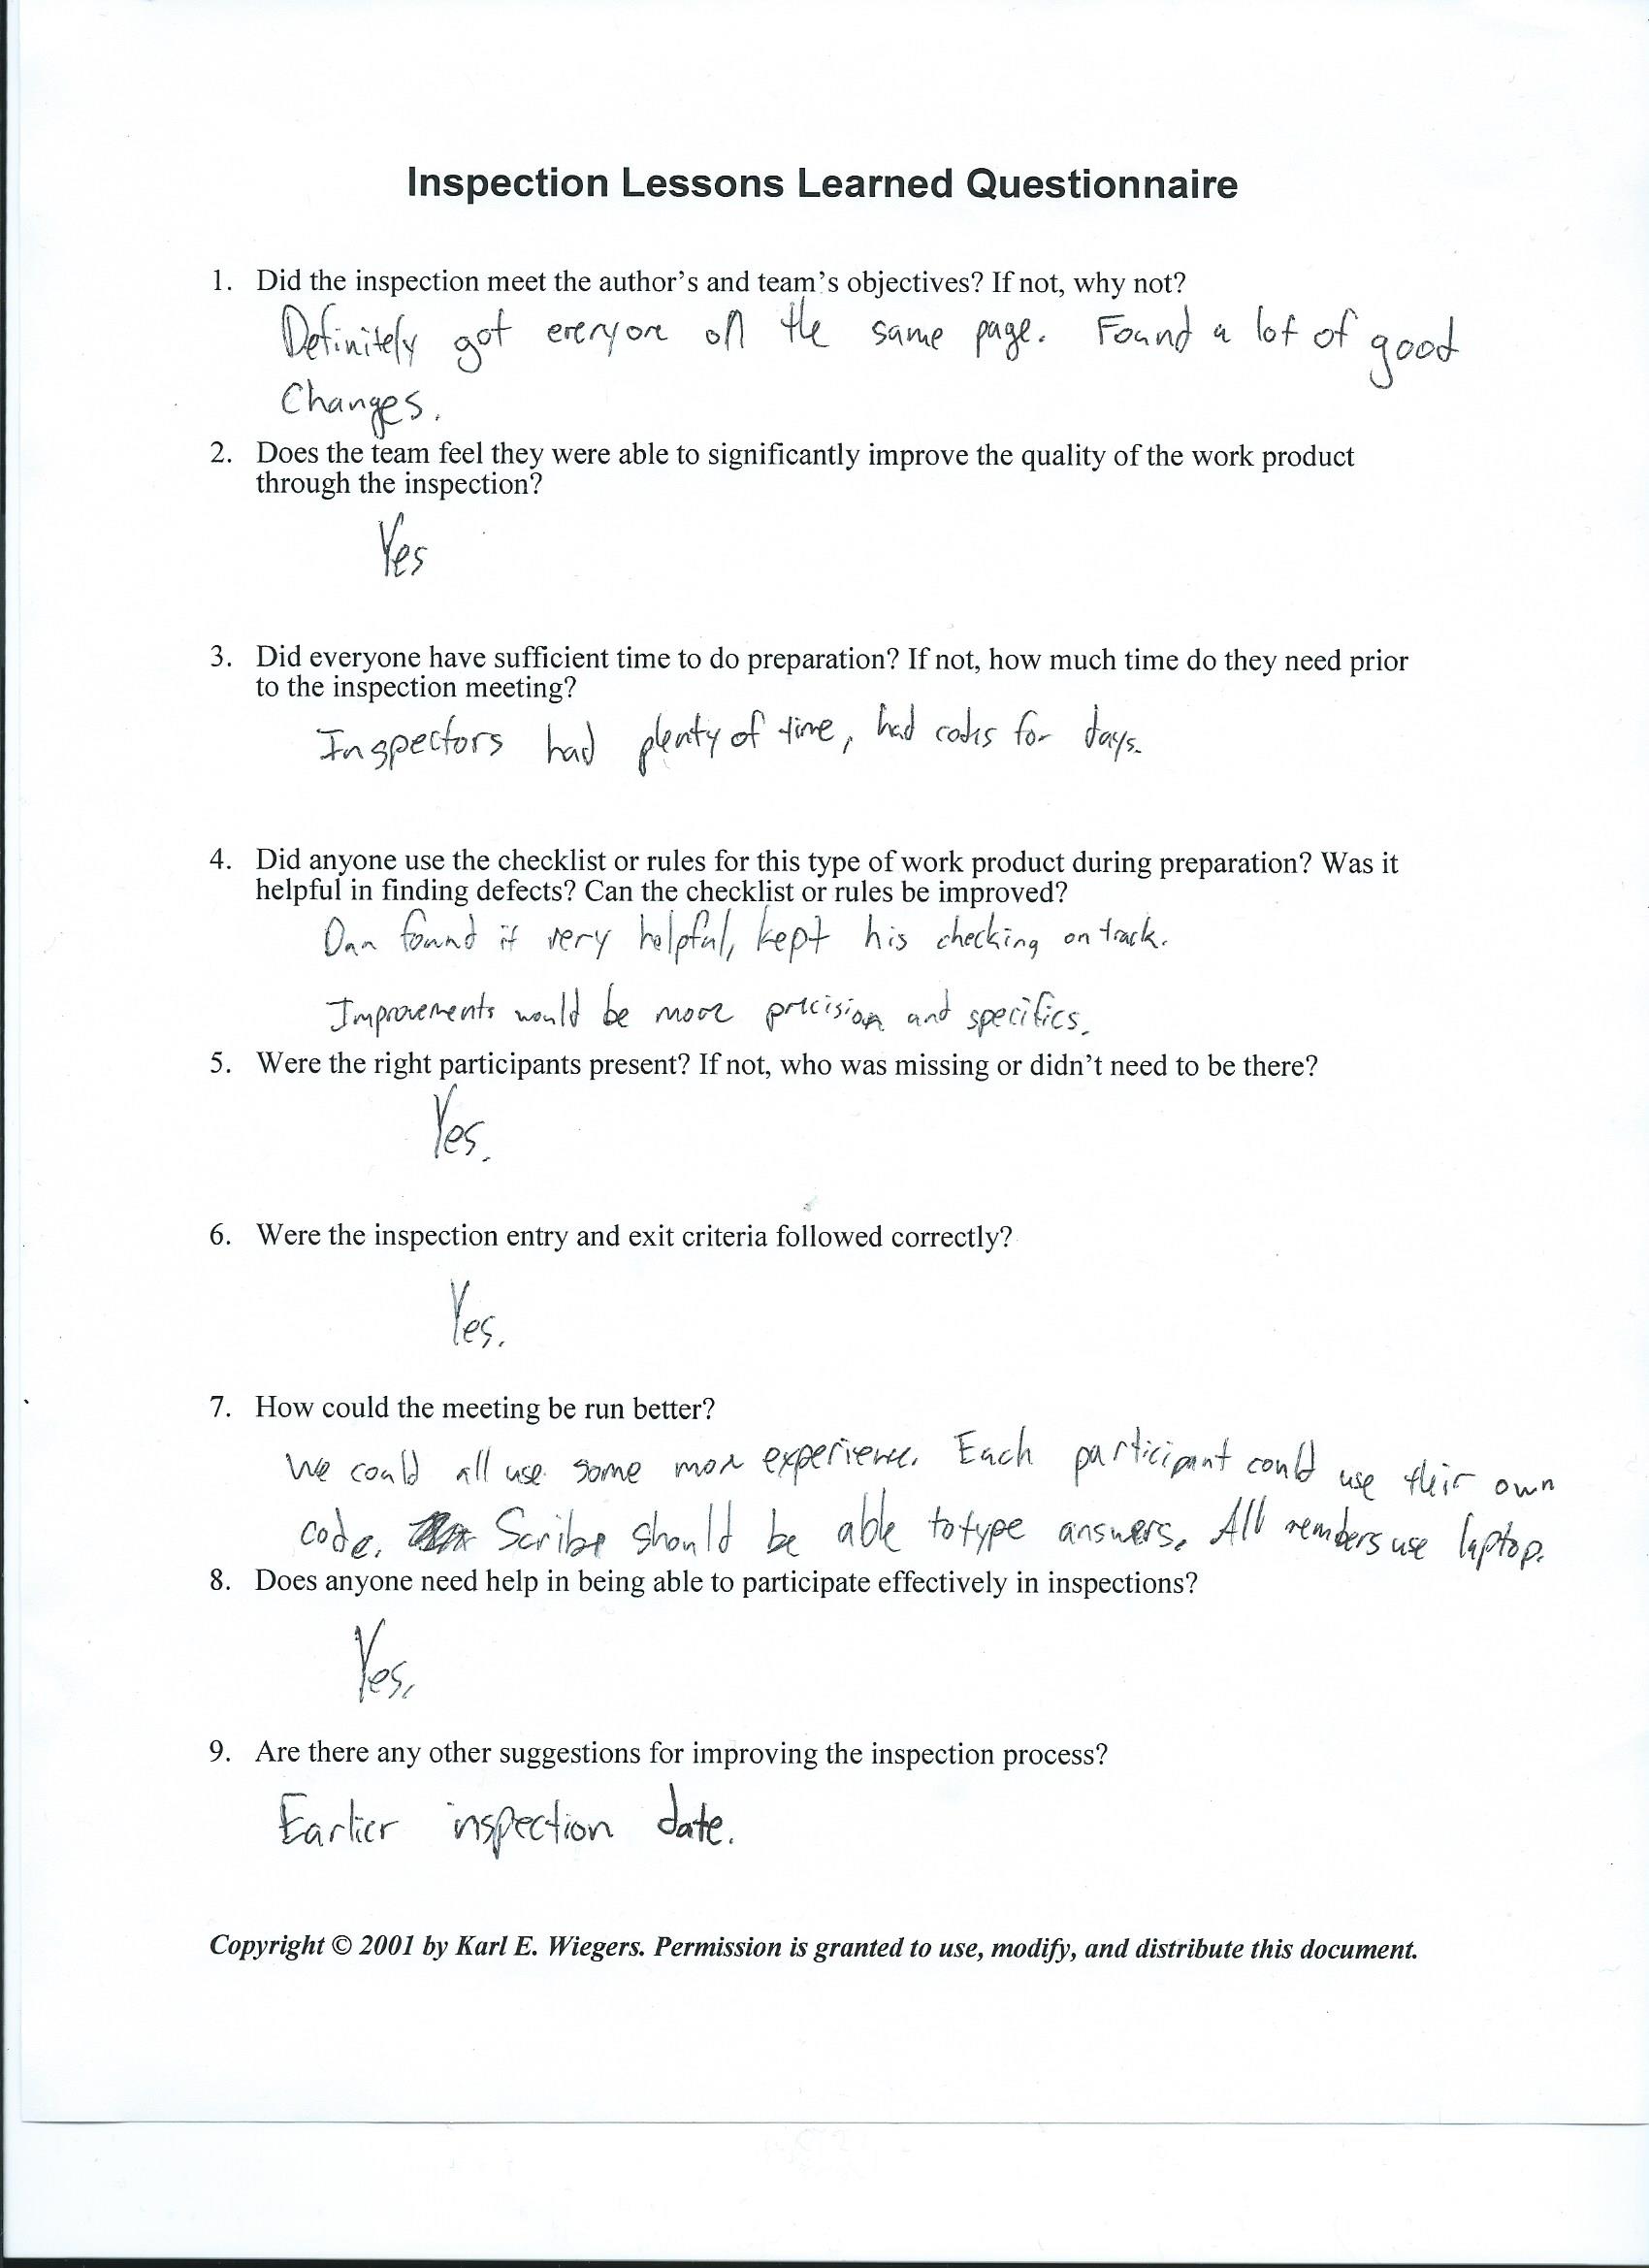 Inspection Lessons Learned Questionnaire
1. Did the inspection meet the author's and team's objectives? If not, why not?
Definitely got everyone on the same page. Found a lot of good
Changes.
2. Does the team feel they were able to significantly improve the quality of the work product
through the inspection?
Yes
3. Did everyone have sufficient time to do preparation? If not, how much time do they need prior
to the inspection meeting?
Inspectors had plenty of time, had codes for days.
4. Did anyone use the checklist or rules for this type of work product during preparation? Was it
helpful in finding defects? Can the checklist or rules be improved?
Dan found it very helpful, kept his checking on track.
Improvements would be more precision and specifics.
5. Were the right participants present? If not, who was missing or didn't need to be there?
Yes.
6. Were the inspection entry and exit criteria followed correctly?
Yes.
7. How could the meeting be run better?
We could all use some more experience. Each participant could use their own
code. Scribe should be able to type answers. All members use laptop.
8. Does anyone need help in being able to participate effectively in inspections?
Yes.
9. Are there any other suggestions for improving the inspection process?
Earlier inspection date.
Copyright © 2001 by Karl E. Wiegers. Permission is granted to use, modify, and distribute this document.